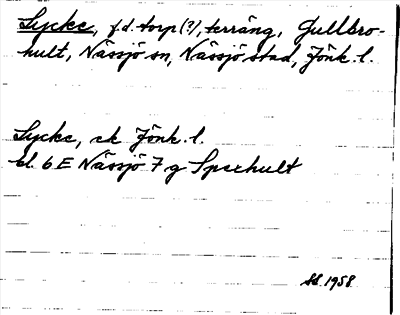 Lycke, f.d. torp(?), terräng, Gullbro-
hult, Nässjö sn, Nässjö stad, Jönk. l.
Lycke, ek Jönk. l.
bl. 6 E Nässjö 7 g Sparhult
SS. 1958